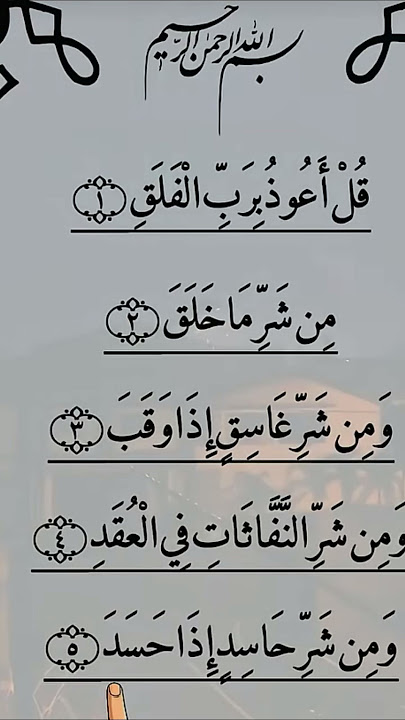 بسم الله الرحمن الرحيم
قُلْ أَعُوذُ بِرَبِّ الْفَلَقِ ١
مِن شَرِّ مَا خَلَقَ ٢
وَمِن شَرِّ غَاسِقٍ إِذَا وَقَبَ ٣
وَمِن شَرِّ النَّفَّاثَاتِ فِي الْعُقَدِ ٤
وَمِن شَرِّ حَاسِدٍ إِذَا حَسَدَ ٥